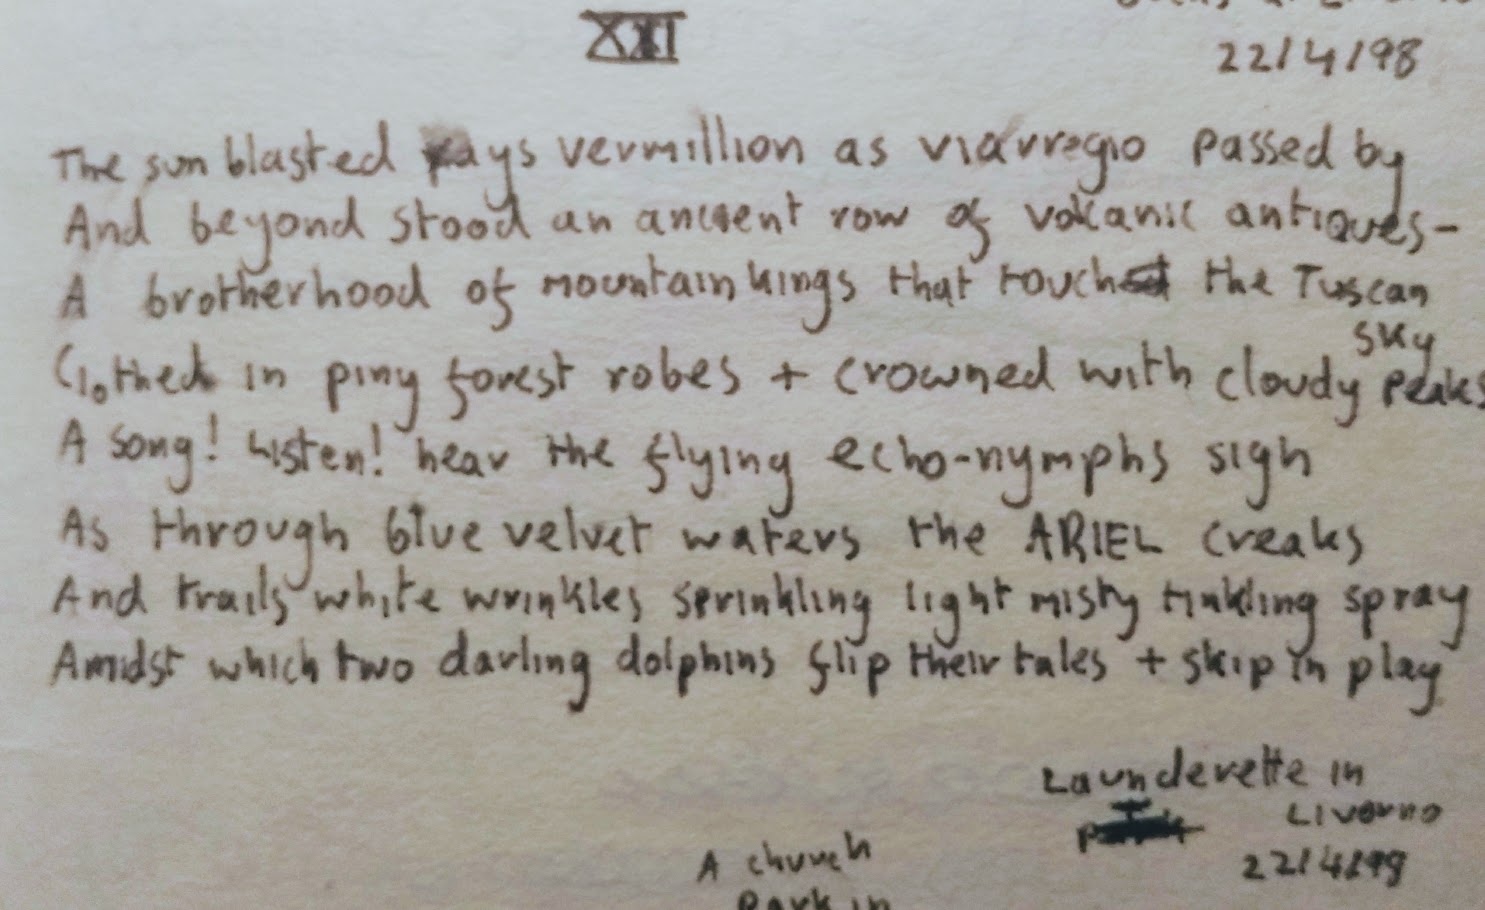 XXI
22/4/98
The sun blasted rays vermillion as viarregio passed by
And beyond stood an ancient row of volcanic antiques-
A brotherhood of mountain kings that touched the Tuscan
sky
Clothed in piny forest robes + crowned with cloudy peaks
A song! Listen! hear the flying echo-nymphs sigh
As through blue velvet waters the ARIEL creaks
And trails white wrinkles sprinkling light misty tinkling spray
Amidst which two darling dolphins flip their tales + skip in play
Launderette in
Livorno
22/4/98
A church
Park in